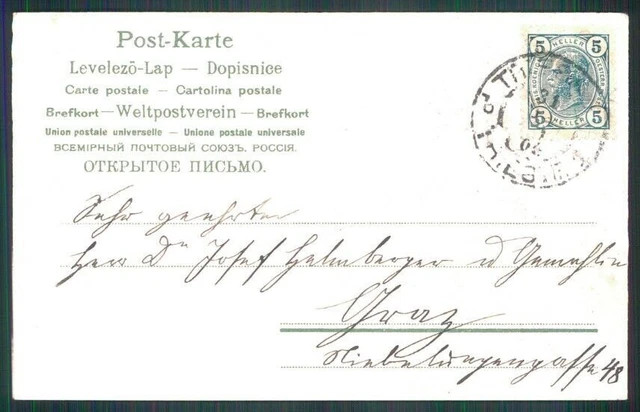 Post-Karte
Levelezō-Lap — Dopisnice
Carte postale — Cartolina postale
Brefkort — Weltpostverein — Brefkort
Union postale universelle — Unione postale universale
ВСЕМІРНЫЙ ПОЧТОВЫЙ СОЮЗЪ. РОССІЯ.
ОТКРЫТОЕ ПИСЬМО.
5 HELLER 5
5 HELLER 5
Sehr geehrten
Herr Dr Josef Helmberger u Gemahlin
Graz
Niebelungengasse 48